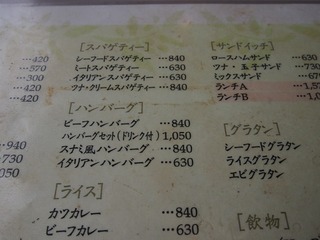 …420
…570
…300
…420
…420
…940
…730
1,050
[スパゲティー]
シーフードスパゲティー …840
ミートスパゲティー …630
イタリアンスパゲティー …630
ツナ・クリームスパゲティー …840
[ハンバーグ]
ビーフハンバーグ …840
ハンバーグセット(ドリンク付) 1,050
スナミ風ハンバーグ …840
イタリアンハンバーグ …630
[ライス]
カツカレー …840
ビーフカレー …630
[サンドイッチ]
ロースハムサンド …630
ツナ・玉子サンド …730
ミックスサンド
ランチA
ランチB
[グラタン]
シーフードグラタン
ライスグラタン
エビグラタン
[飲物]